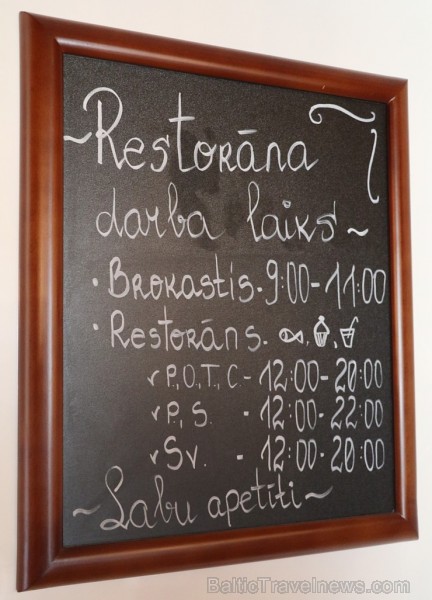 ~Restorāna
darba laiks~
• Brokastis. 9:00-11:00
• Restorāns.
✓ P., O., T., C. - 12:00-20:00
✓ P., S. - 12:00-22:00
✓ Sv. - 12:00-20:00
~Labu apetīti~
BalticTravelnews.com